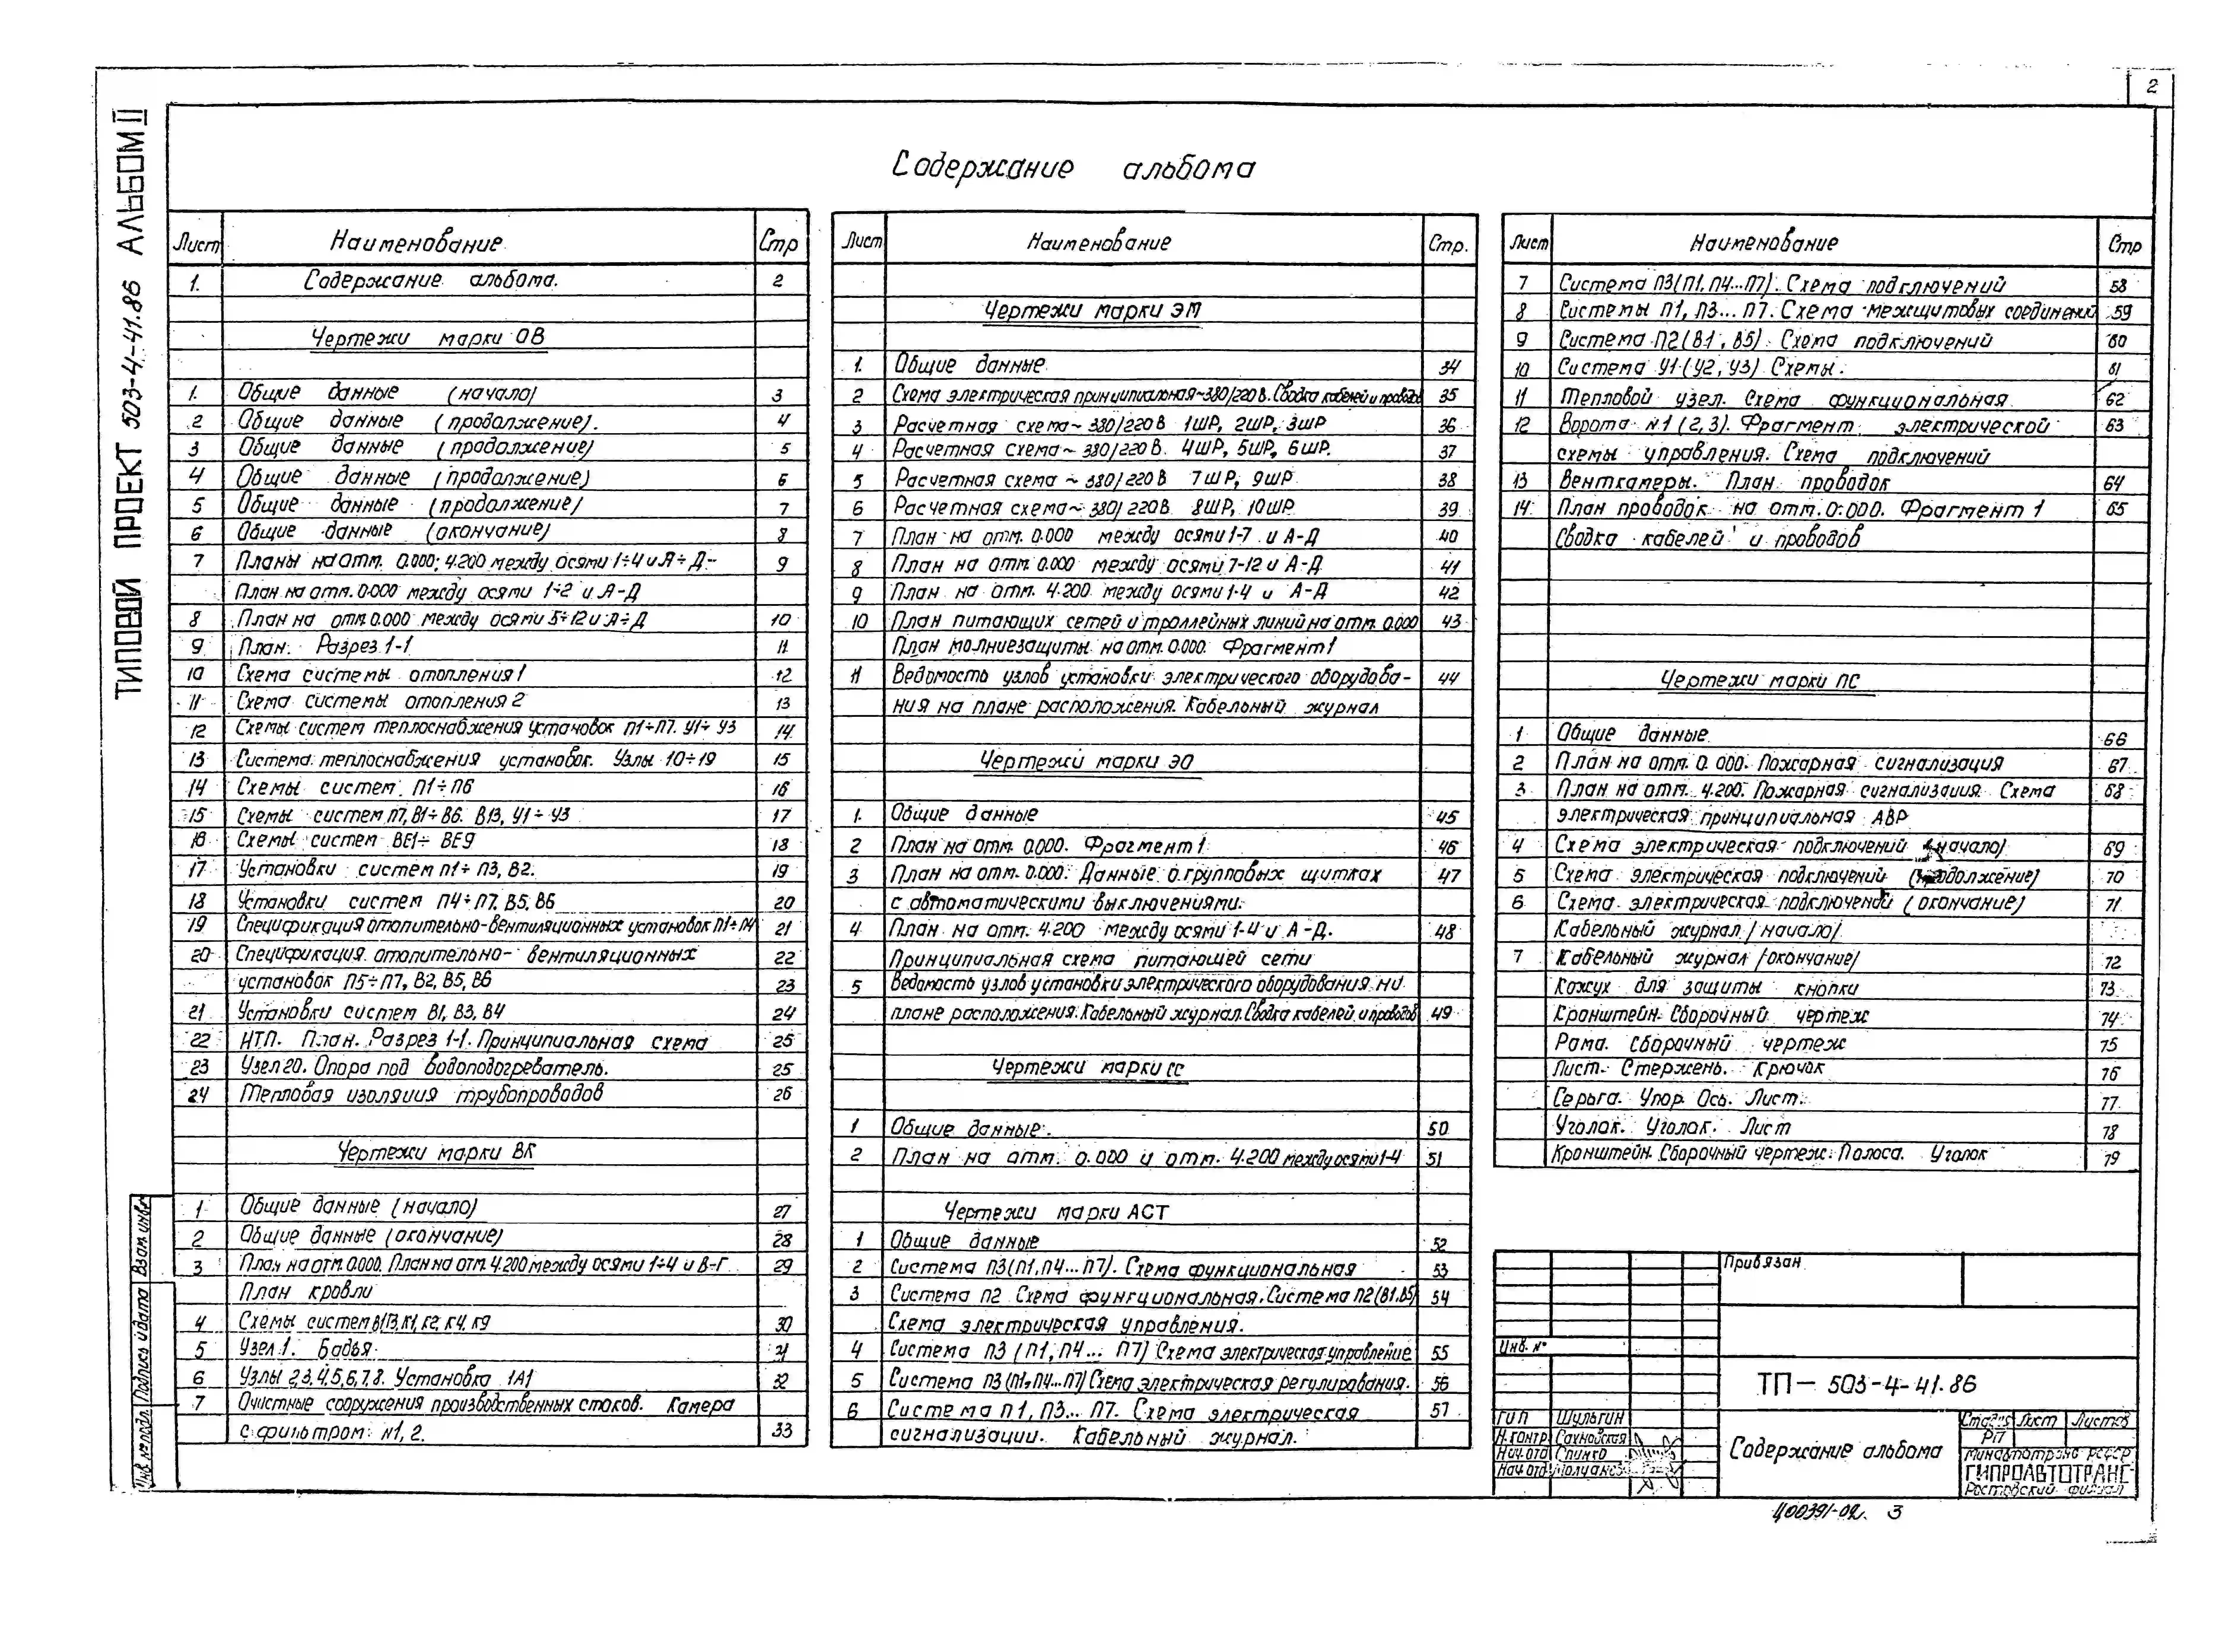 2
ТИПОВОЙ ПРОЕКТ 503-4-41.86 АЛЬБОМ II
Содержание альбома
Лист Наименование Стр
1. Содержание альбома. 2
Чертежи марки ОВ
1. Общие данные (начало) 3
2 Общие данные (продолжение). 4
3 Общие данные (продолжение) 5
4 Общие данные (продолжение) 6
5 Общие данные (продолжение) 7
6 Общие данные (окончание) 8
7 Планы на отм. 0.000; 4.200 между осями 1÷4 и А÷Д- 9
План на отм. 0.000 между осями 1÷2 и А-Д
8 План на отм. 0.000 между осями 5÷12 и А÷Д 10
9 План. Разрез 1-1 11
10 Схема системы отопления 1 12
11 Схема системы отопления 2 13
12 Схемы систем теплоснабжения установок П1÷П7. У1÷У3 14
13 Система теплоснабжения установок. Узлы 10÷19 15
14 Схемы систем П1÷П6 16
15 Схемы систем П7, В1÷В6. В13, У1÷У3 17
16 Схемы систем ВЕ1÷ВЕ9 18
17 Установки систем П1÷П3, В2. 19
18 Установки систем П4÷П7. В5, В6 20
19 Спецификация отопительно-вентиляционных установок П1÷П4 21
20 Спецификация отопительно-вентиляционных 22
установок П5÷П7, В2, В5, В6 23
21 Установки систем В1, В3, В4 24
22 ИТП. План. Разрез 1-1. Принципиальная схема 25
23 Узел 20. Опора под водоподогреватель. 25
24 Тепловая изоляция трубопроводов 26
Чертежи марки ВК
1 Общие данные (начало) 27
2 Общие данные (окончание) 28
3 План на отм. 0.000. План на отм. 4.200 между осями 1÷4 и В-Г 29
План кровли
4 Схемы систем В1, В3, К1, К2, К4, К9 30
5 Узел 1. Бадья 31
6 Узлы 2,3,4,5,6,7,8. Установка 1А1 32
7 Очистные сооружения производственных стоков. Камера
с фильтром N1, 2. 33
Лист Наименование Стр.
Чертежи марки ЭМ
1. Общие данные 34
2 Схема электрическая принципиальная ~380/220 В. Сводка кабелей и проводов 35
3 Расчетная схема ~ 380/220 В 1ШР, 2ШР, 3ШР 36
4 Расчетная схема ~ 380/220 В. 4ШР, 5ШР, 6ШР. 37
5 Расчетная схема ~ 380/220 В 7ШР, 9ШР 38
6 Расчетная схема ~ 380/220 В. 8ШР, 10ШР 39
7 План на отм. 0.000 между осями 1-7 и А-Д 40
8 План на отм. 0.000 между осями 7-12 и А-Д 41
9 План на отм. 4.200 между осями 1-4 и А-Д 42
10 План питающих сетей и троллейных линий на отм. 0.000 43
План молниезащиты на отм. 0.000. Фрагмент 1
11 Ведомость узлов установки электрического оборудова- 44
ния на плане расположения. Кабельный журнал
Чертежи марки ЭО
1. Общие данные 45
2 План на отм. 0.000. Фрагмент 1 46
3 План на отм. 0.000. Данные о групповых щитках 47
с автоматическими выключениями.
4 План на отм. 4.200 между осями 1-4 и А-Д. 48
Принципиальная схема питающей сети
5 Ведомость узлов установки электрического оборудования на
плане расположения. Кабельный журнал. Сводка кабелей и проводов 49
Чертежи марки СС
1 Общие данные. 50
2 План на отм. 0.000 и отм. 4.200 между осями 1-4 51
Чертежи марки АСТ
1 Общие данные 52
2 Система П3(П1, П4... П7). Схема функциональная 53
3 Система П2 Схема функциональная. Система П2 (В1, В5) 54
Схема электрическая управления.
4 Система П3 (П1, П4... П7) Схема электрическая управление 55
5 Система П3 (П1, П4... П7) Схема электрическая регулирования. 56
6 Система П1, П3... П7. Схема электрическая 57
сигнализации. Кабельный журнал.
Лист Наименование Стр
7 Система П3(П1, П4...П7). Схема подключений 58
8 Системы П1, П3... П7. Схема межщитовых соединений 59
9 Система П2(В1, В5). Схема подключений 60
10 Система У1 (У2, У3) Схемы. 61
11 Тепловой узел. Схема функциональная 62
12 Ворота N1 (2,3). Фрагмент электрической 63
схемы управления. Схема подключений
13 Венткамеры. План проводок 64
14 План проводок на отм. 0.000. Фрагмент 1 65
Сводка кабелей и проводов
Чертежи марки ПС
1 Общие данные 66
2 План на отм. 0.000. Пожарная сигнализация 67
3 План на отм. 4.200. Пожарная сигнализация. Схема 68
электрическая принципиальная АВР
4 Схема электрическая подключений (начало) 69
5 Схема электрическая подключений (продолжение) 70
6 Схема электрическая подключений (окончание) 71
Кабельный журнал (начало)
7 Кабельный журнал (окончание) 72
Кожух для защиты кнопки 73
Кронштейн. Сборочный чертеж 74
Рама. Сборочный чертеж 75
Лист. Стержень. Крючок 76
Серьга. Упор. Ось. Лист. 77
Уголок. Уголок. Лист 78
Кронштейн. Сборочный чертеж. Полоса. Уголок 79
Привязан
Инв. N°
ТП — 503-4-41.86
ГИП Шульгин
Н.контр Сахновская
Нач.отд
Нач.отд
Содержание альбома
Стадия Лист Листов
РП
Минавтотранс РСФСР
ГИПРОАВТОТРАНС
Ростовский филиал
Инв. № подл. Подпись и дата Взам. инв. №
Ц00391-02 3